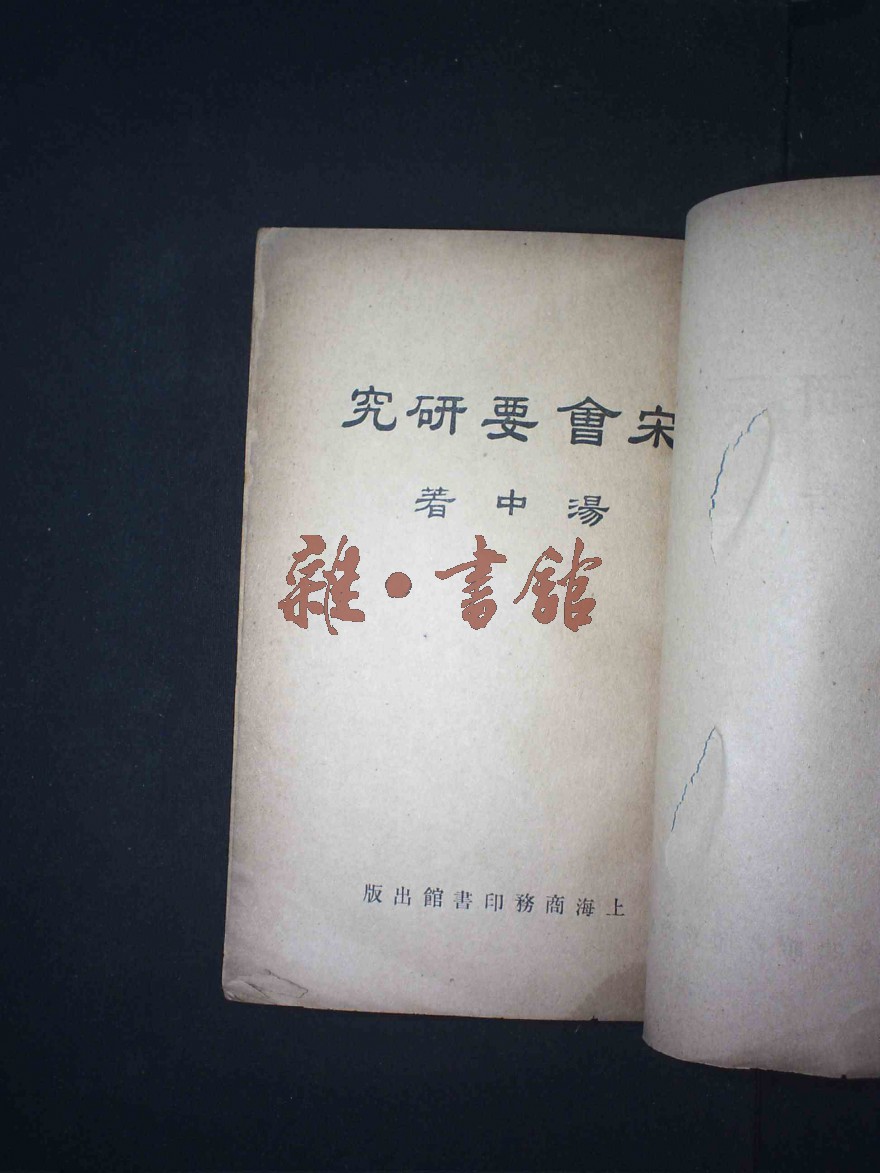 宋會要研究
湯中著
雜·書館
上海商務印書館出版